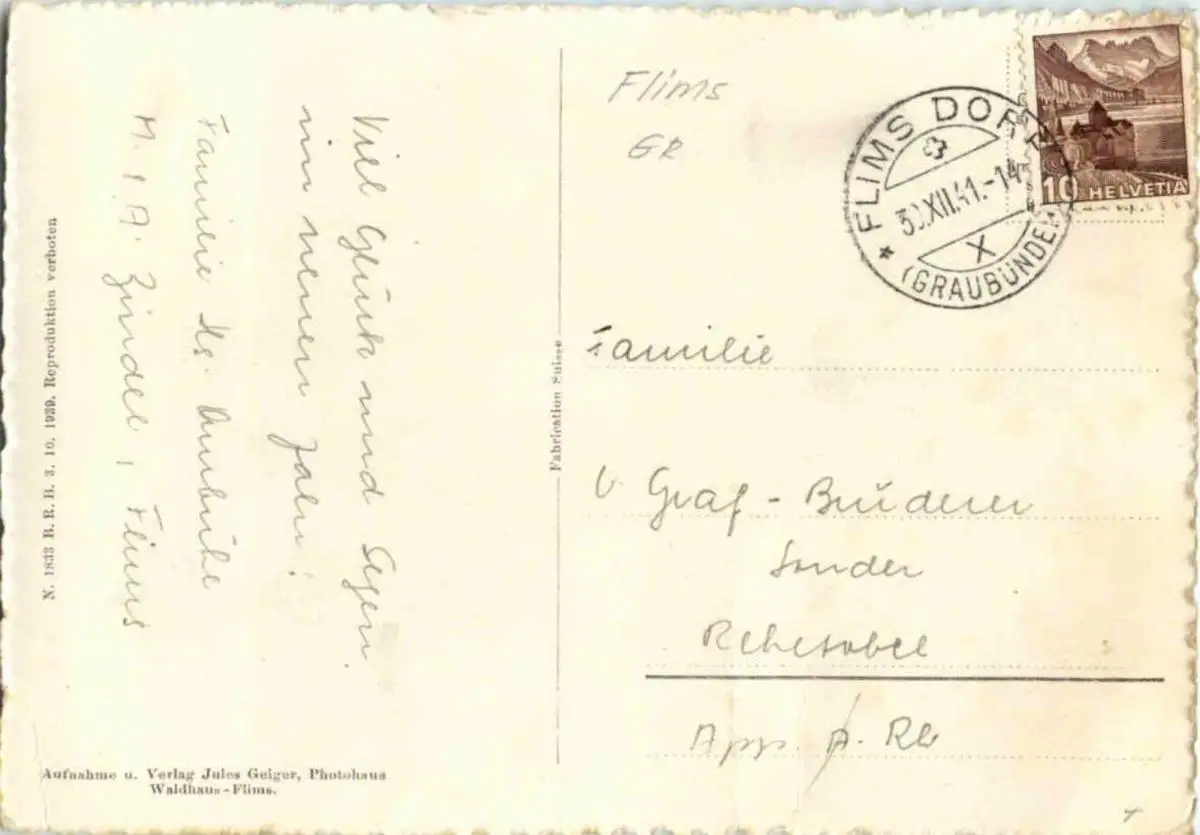 Viel Glück und Segen
im neuen Jahr!
Familie Hs.
M. & A. Zindel, Flims
N. 1833 B. R. B. 3. 10. 1939. Reproduktion verboten
Aufnahme u. Verlag Jules Geiger, Photohaus
Waldhaus-Flims.
Fabrication Suisse
Flims
GR
FLIMS DORF
30.XII.41.-14
X
(GRAUBÜNDEN)
10 HELVETIA
Familie
Graf - Bruderer
Sonder
Rehetobel
App. A. Rh